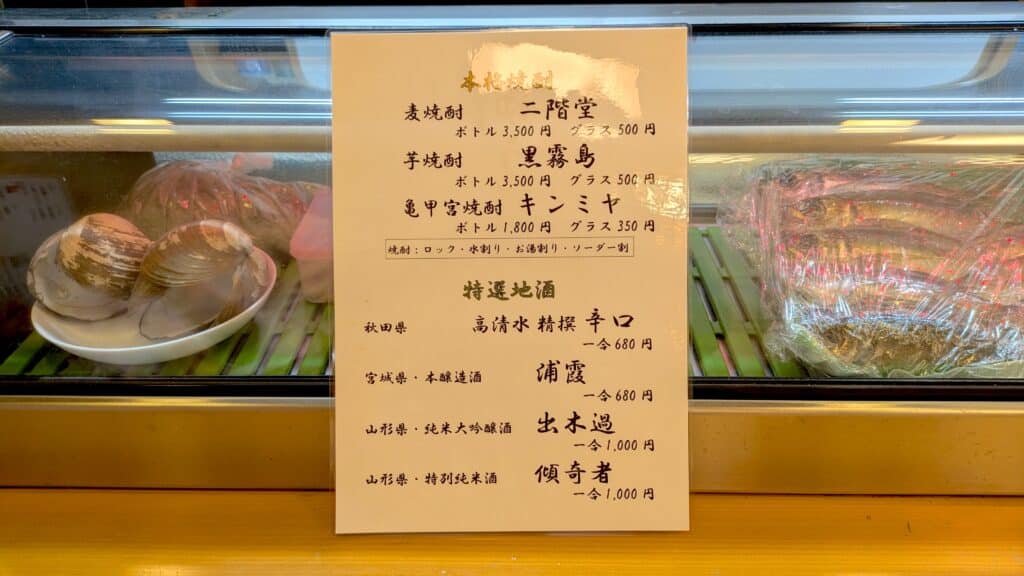 本格焼酎
麦焼酎 二階堂
ボトル 3,500 円 グラス 500 円
芋焼酎 黒霧島
ボトル 3,500 円 グラス 500 円
亀甲宮焼酎 キンミヤ
ボトル 1,800 円 グラス 350 円
焼酎：ロック・水割り・お湯割り・ソーダー割
特選地酒
秋田県 高清水 精撰 辛口
一合 680 円
宮城県・本醸造酒 浦霞
一合 680 円
山形県・純米大吟醸酒 出木過
一合 1,000 円
山形県・特別純米酒 傾奇者
一合 1,000 円